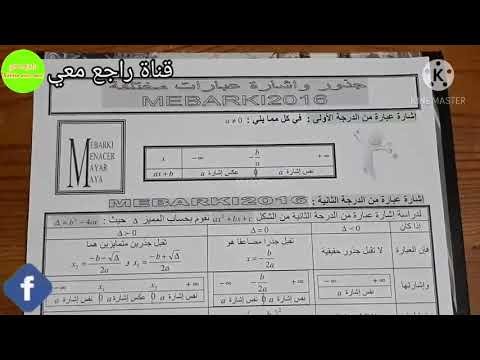 قناة راجع معي
KINEMASTER
جذور وإشارة عبارات مختلفة
MEBARKI2016
إشارة عبارة من الدرجة الأولى : في كل مما يلي : a ≠ 0
MEBARKI
MENACER
MAYAR
MAYA
x −∞ −b/a +∞
ax+b عكس إشارة a 0 نفس إشارة a
إشارة عبارة من الدرجة الثانية : MEBARKI2016
لدراسة إشارة عبارة من الدرجة الثانية من الشكل ax²+bx+c نقوم بحساب المميز Δ حيث : Δ = b² − 4ac
إذا كان Δ < 0 Δ = 0 Δ > 0
فإن العبارة لا تقبل جذور حقيقية تقبل جذرا مضاعفا هو تقبل جذرين متمايزين هما
x = −b/2a x₁ = −b+√Δ/2a و x₂ = −b−√Δ/2a
وإشارتها −∞ +∞ −∞ −b/2a +∞ −∞ x₁ x₂ +∞
نفس إشارة a نفس إشارة a 0 نفس إشارة a نفس إشارة a 0 عكس إشارة a 0 نفس إشارة a